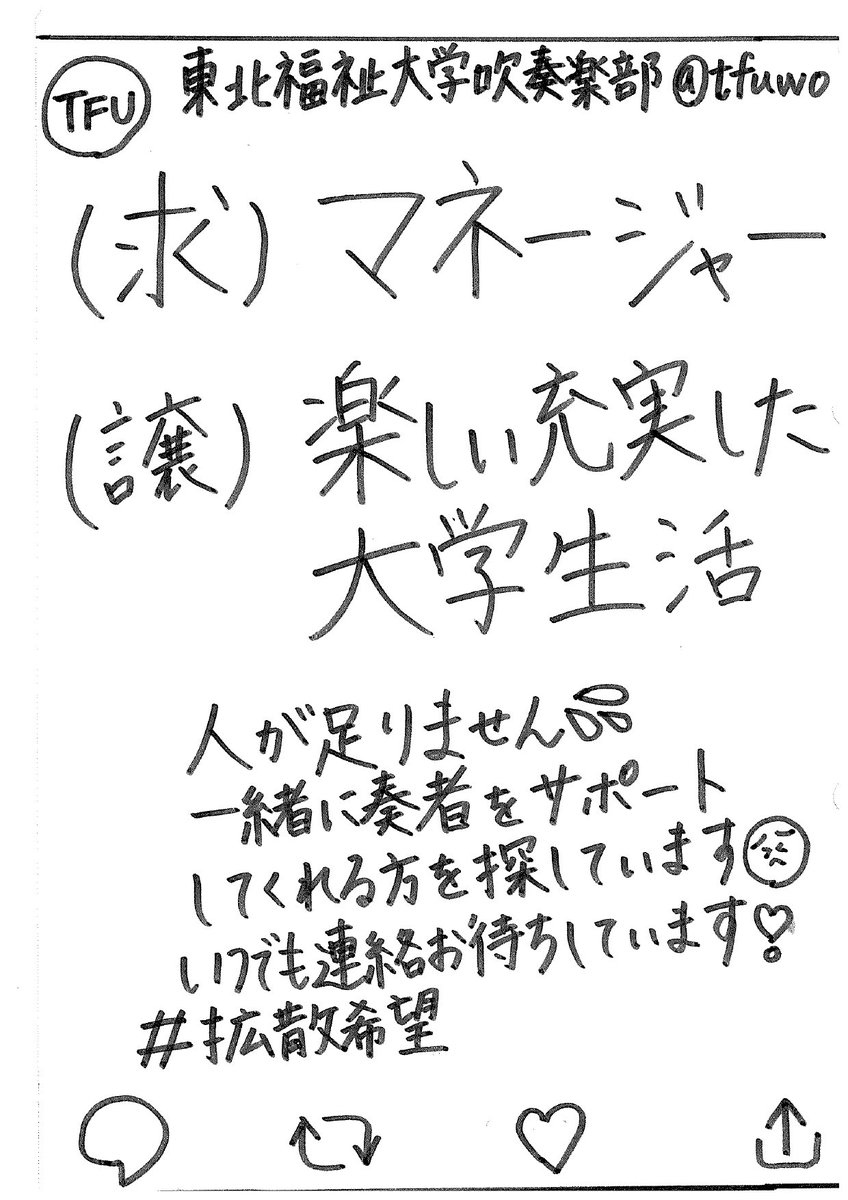 TFU 東北福祉大学吹奏楽部 @tfuwo
(求) マネージャー
(譲) 楽しい充実した
大学生活
人が足りません
一緒に奏者をサポート
してくれる方を探しています
いつでも連絡お待ちしています
#拡散希望